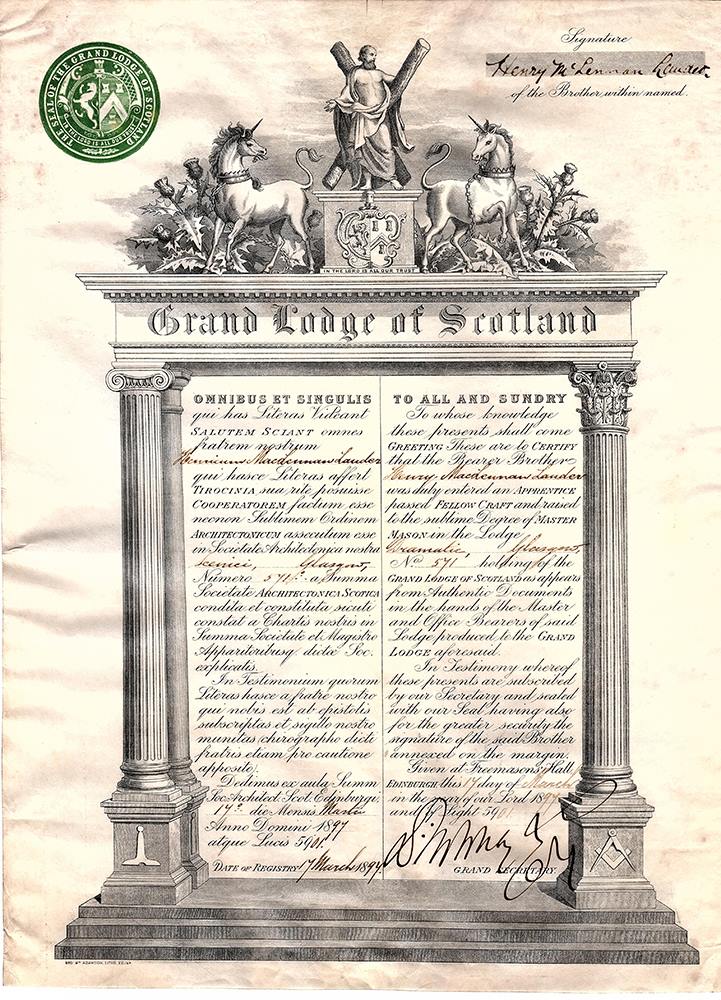 THE SEAL OF THE GRAND LODGE OF SCOTLAND
IN THE LORD IS ALL OUR TRUST
Signature
Henry McLennan Lauder
of the Brother within named.
IN THE LORD IS ALL OUR TRUST
Grand Lodge of Scotland
OMNIBUS ET SINGULIS
qui has Literas Viderint
SALUTEM SCIANT omnes
fratrem nostrum
Henricum MacLennan Lauder
qui hasce Literas affert
TIROCINIA sua rite posuisse
COOPERATOREM factum esse
necnon Sublimem Ordinem
ARCHITECTONICUM assecutum esse
in Societate Architectonica nostra
Scenici, Glasgow,
Numero 571 a Summa
Societate ARCHITECTONICA SCOTICA
condita et constituta sicuti
constat a Chartis nostris in
Summa Societate et Magistro
Apparitoribusq. dictæ Soc.
explicatis.
In Testimonium quorum
Literas hasce a fratre nostro
qui nobis est ab epistolis
subscriptas et sigillo nostro
munitas chirographo dicti
fratris etiam pro cautione
apposito.
Dedimus ex aula Summ
Soc. Architect. Scot. Edinburgi
17o. die Mensis Martii
Anno Domini 1897
atque Lucis 5901
DATE OF REGISTRY 17 March 1897.
TO ALL AND SUNDRY
To whose knowledge
these presents shall come
GREETING These are to CERTIFY
that the Bearer Brother
Henry MacLennan Lauder
was duly entered an APPRENTICE
passed FELLOW CRAFT and raised
to the sublime Degree of MASTER
MASON in the Lodge
Dramatic, Glasgow,
No. 571 holding of the
GRAND LODGE OF SCOTLAND as appears
from Authentic Documents
in the hands of the Master
and Office Bearers of said
Lodge produced to the GRAND
LODGE aforesaid.
In Testimony whereof
these presents are subscribed
by our Secretary and sealed
with our Seal, having also
for the greater security the
signature of the said Brother
annexed on the margin.
Given at Freemasons' Hall
EDINBURGH this 17 day of March
in the year of our Lord 1897
and of Light 5901
GRAND SECRETARY.